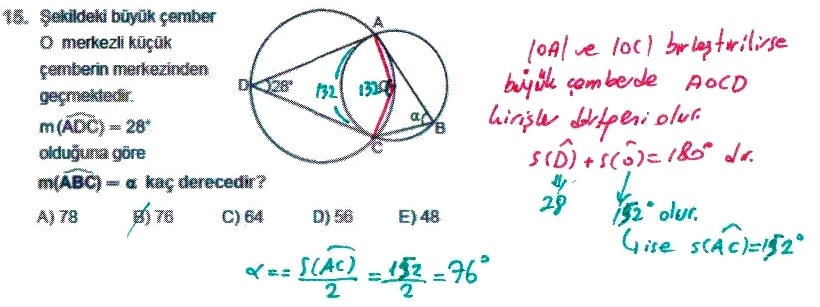 15. Şekildeki büyük çember
O merkezli küçük
çemberin merkezinden
geçmektedir.
m(ADC) = 28°
olduğuna göre
m(ABC) = α kaç derecedir?
A) 78 B) 76 C) 64 D) 56 E) 48
A
D 28° 132 132
α B
C
|OA| ve |OC| birleştirilirse
büyük çemberde AOCD
kirişler dörtgeni olur.
S(D) + S(O) = 180° dir.
28 152° olur.
ise S(AC) = 152°
α == S(AC)/2 = 152/2 = 76°